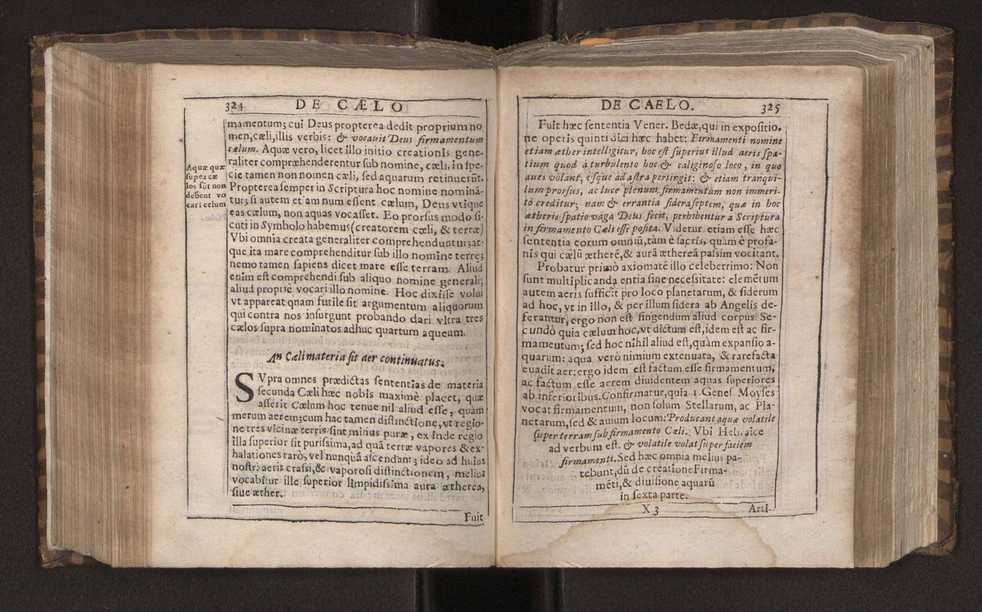 324 DE CÆLO
mamentum; cui Deus propterea dedit proprium no
men, cæli, illis verbis: & vocauit Deus firmamentum
cælum. Aquæ vero, licet illo initio creationis gene-
raliter comprehenderentur sub nomine, cæli, in spe-
cie tamen non nomen cæli, sed aquarum retinuerũt.
Propterea semper in Scriptura hoc nomine nominã-
tur; si autem etiam num essent cælum, Deus vtique
eas cælum, non aquas vocasset. Eo prorsus modo si-
cuti in Symbolo habemus (creatorem cæli, & terræ)
Vbi omnia creata generaliter comprehenduntur: at-
que ita mare comprehenditur sub illo nomine terræ;
nemo tamen sapiens dicet mare esse terram. Aliud
enim est comprehendi sub aliquo nomine generali;
aliud propriè vocari illo nomine. Hoc dixisse volui
vt appareat quam futile sit argumentum aliquorum
qui contra nos insurgunt probando dari vltra tres
cælos supra nominatos adhuc quartum aqueum.
Aquæ quæ
supra cæ
los sũt non
debent vo
cari celum
An Cæli materia sit aer continuatus.
SVpra omnes prædictas sententias de materia
secunda Cæli hæc nobis maximè placet, quæ
asserit Cælum hoc tenue nil aliud esse, quàm
merum aerem; cum hac tamen distinctione, vt regio-
ne tres vicinæ terris sint minus puræ, ex inde regio
illa superior sit purissima, ad quã terræ vapores & ex-
halationes rarò, vel nunquã ascendant; ideo ad huius
nostri aeris crassi, & vaporosi distinctionem, melius
vocabitur ille superior limpidissima aura ætherea,
siue æther.
Fuit
DE CAELO. 325
Fuit hæc sententia Vener. Bedæ, qui in expositio-
ne operis quinti diei hæc habet: Firmamenti nomine
etiam æther intelligitur, hoc est superius illud aeris spa-
tium quod à turbulento hoc & caliginoso loco, in quo
aues volant, vsque ad astra pertingit: & etiam tranqui-
lum prorsus, ac luce plenum firmamentum non immeri-
tò creditur; nam & errantia sidera septem, quæ in hoc
ætheris spatio vaga Deus fecit, perhibentur a Scriptura
in firmamento Cæli esse posita. Videtur etiam esse hæc
sententia eorum omniũ, tàm è sacris, quàm è profa-
nis qui cælũ ætherẽ, & aurã ætheream passim vocitant.
Probatur primò axiomate illo celeberrimo: Non
sunt multiplicanda entia sine necesitate: elemẽtum
autem aeris sufficit pro loco planetarum, & siderum
ad hoc, vt in illo, & per illum sidera ab Angelis de-
ferantur, ergo non est fingendum aliud corpus. Se-
cundò quia cælum hoc, vt dictum est, idem est ac fir-
mamentum; sed hoc nihil aliud est, quàm expansio a-
quarum: aqua verò nimium extenuata, & rarefacta
euadit aer: ergo idem est factum esse firmamentum,
ac factum esse aerem diuidentem aquas superiores
ab inferioribus. Confirmatur, quia 1 Genes. Moyses
vocat firmamentum, non solum Stellarum, ac Pla-
netarum, sed & auium locum: Producant aquæ volatile
super terram sub firmamento Cæli. Vbi Heb. aice
ad verbum est. & volatile volat super faciem
firmamenti. Sed hæc omnia melius pa-
tebunt, dũ de creatione Firma-
mẽti, & diuisione aquarũ
in sexta parte.
X 3 Arti-